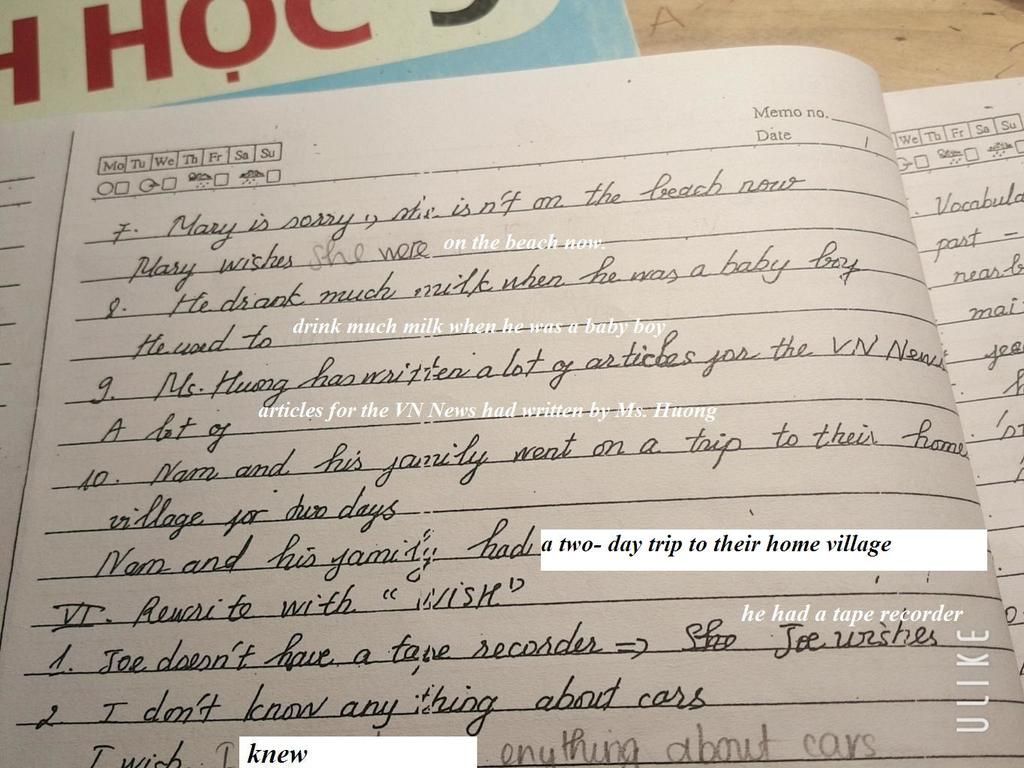 H HỌC 9
Memo no.
Date
Mo Tu We Th Fr Sa Su
7. Mary is sorry, she isn't on the beach now
Mary wishes she were on the beach now.
8. He drank much milk when he was a baby boy
drink much milk when he was a baby boy
He used to
9. Ms. Huong has written a lot of articles for the VN News
articles for the VN News had written by Ms. Huong
A lot of
10. Nam and his family went on a trip to their home
village for two days
Nam and his family had a two- day trip to their home village
VI. Rewrite with "WISH"
he had a tape recorder
1. Joe doesn't have a tape recorder => She Joe wishes
2 I don't know any thing about cars
I wish I knew enything about cars
We Th Fr Sa Su
Vocabula
part =
nearb
mai
yea
ULIKE